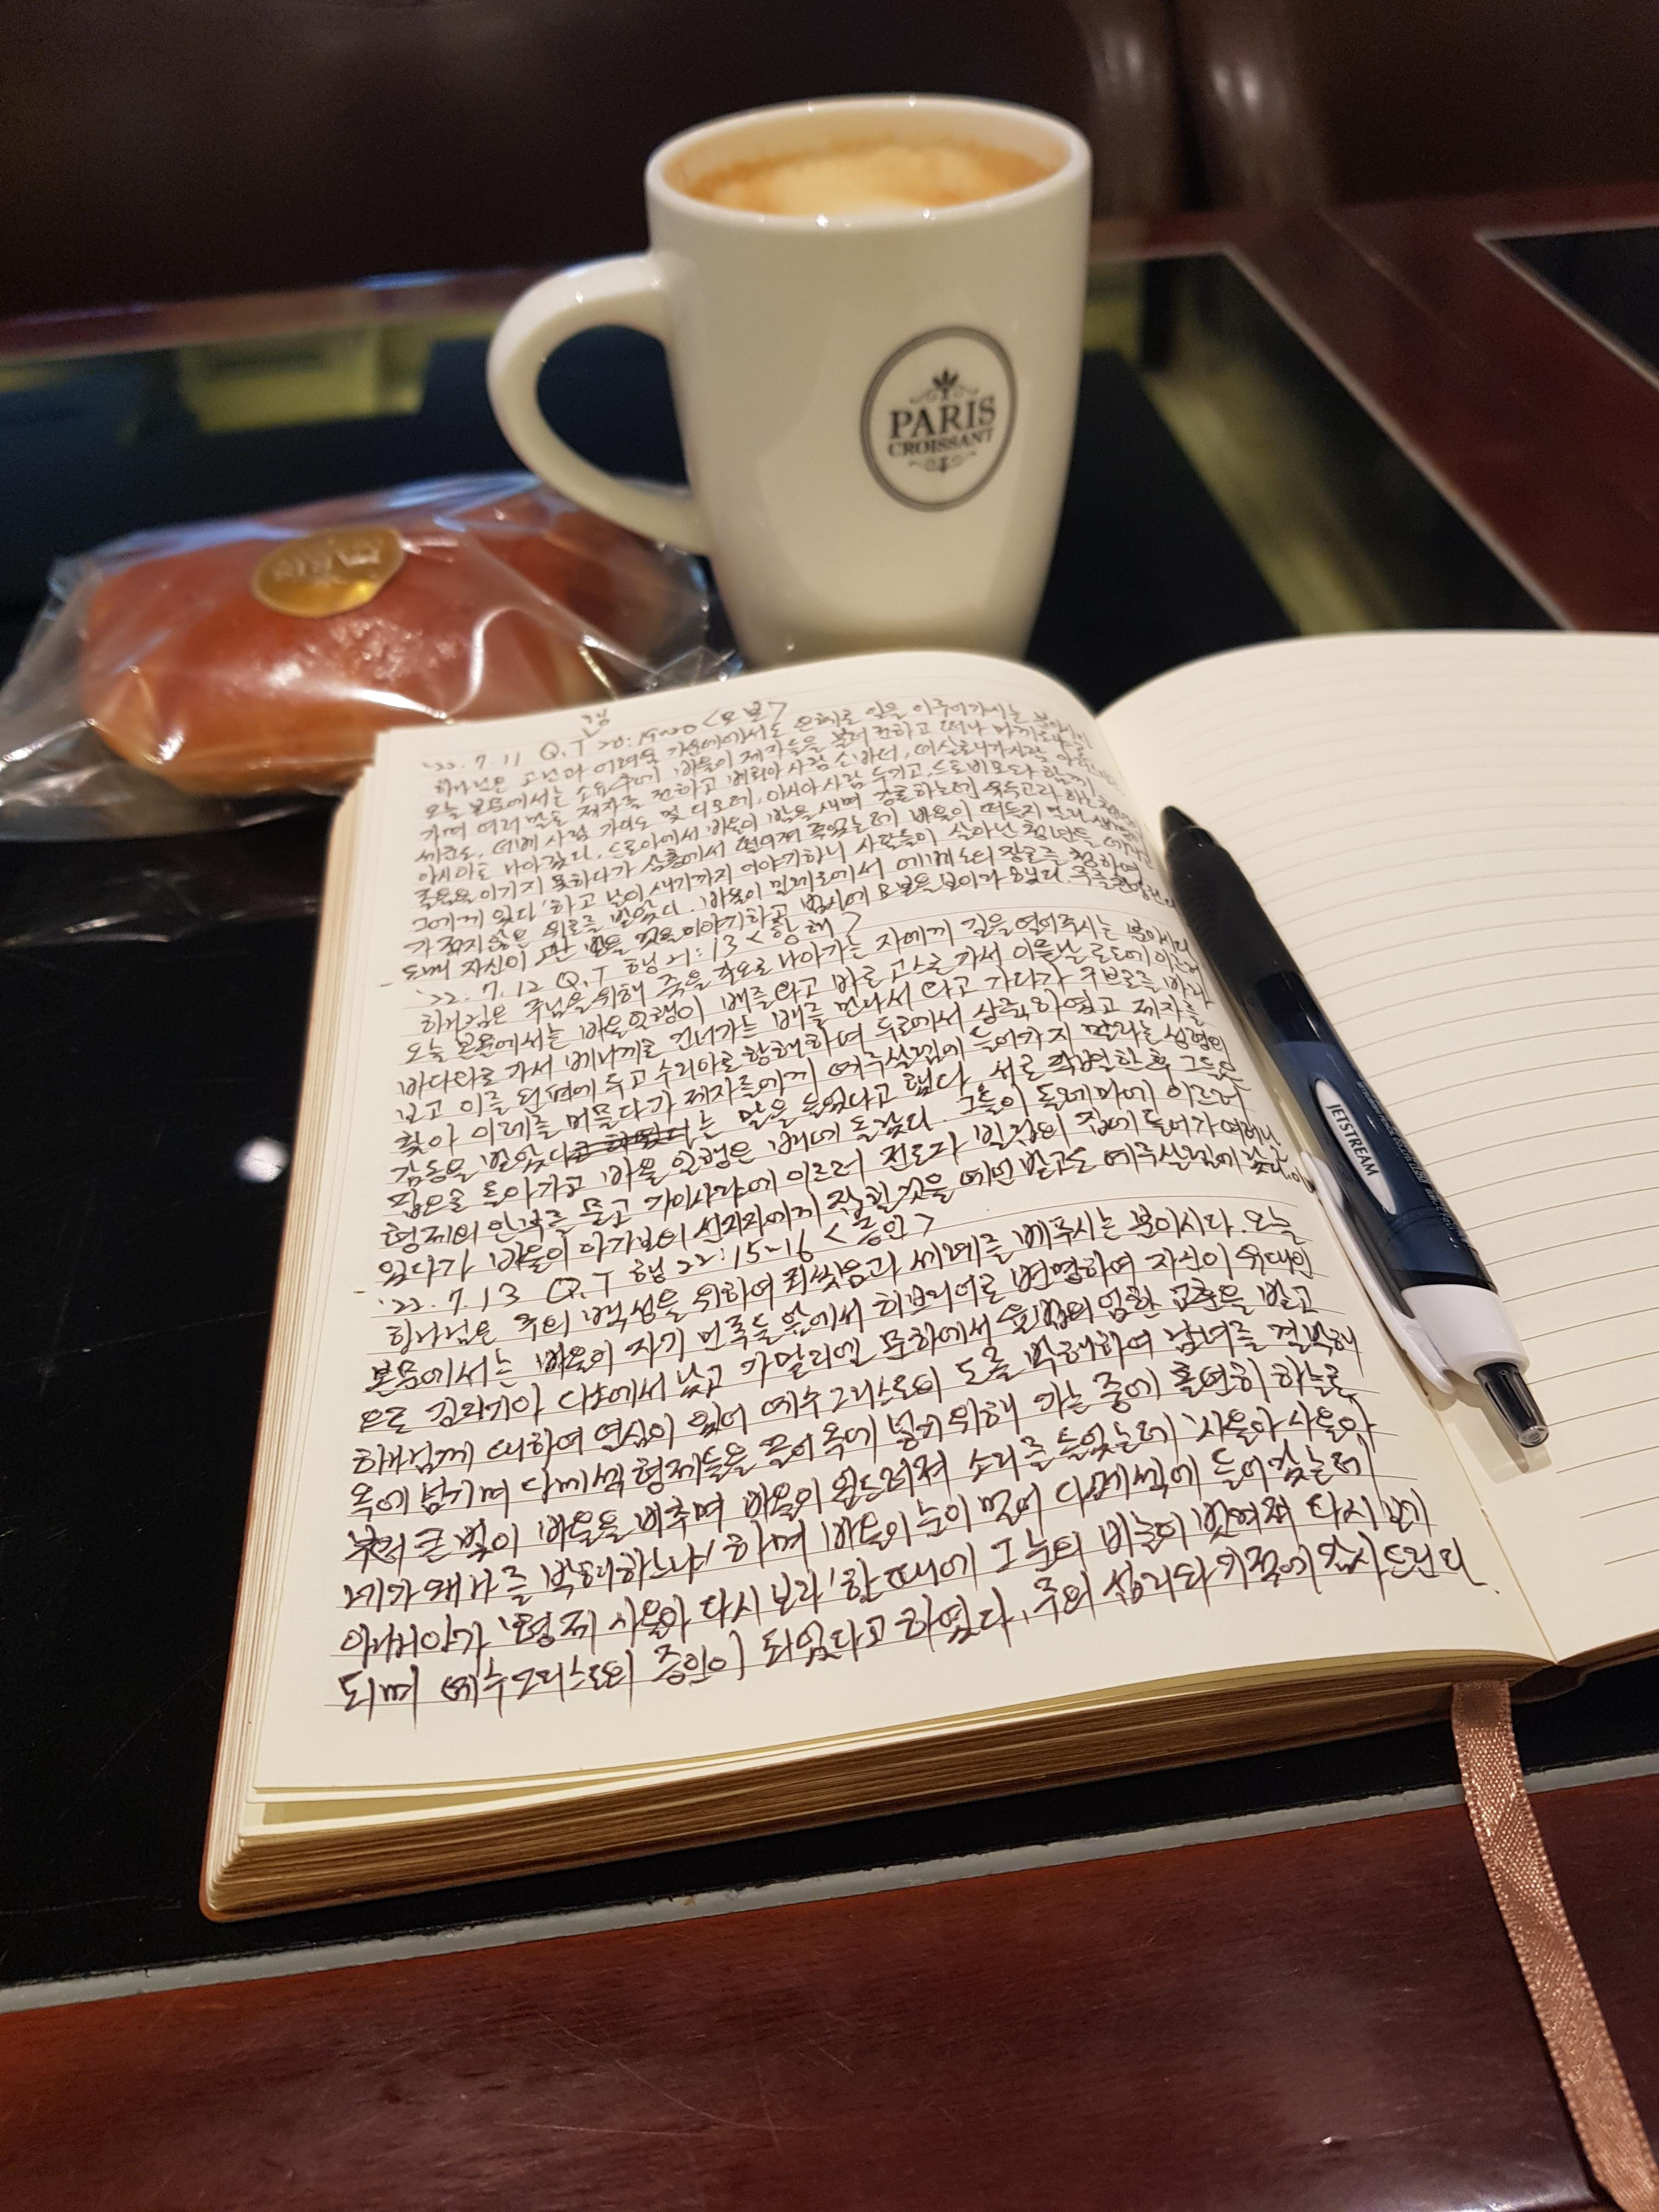 PARIS
CROISSANT
PARIS
행
'22. 7. 11 Q.T 20:19~20 <도보>
하나님은 고난과 어려움 가운데에서도 은혜로 일을 이루어가시는 분이시다
오늘 본문에서는 소요 후에 바울이 제자들을 불러 권하고 떠나 마게도냐로
가며 여러 말로 제자를 권하고 베뢰아 사람 소바더, 데살로니가 사람
세군도, 더베 사람 가이오 및 디모데, 아시아 사람 두기고, 드로비모와 함께
아시아로 나아갔다. 드로아에서 바울이 밤을 새며 강론하는데 유두고라 하는 청년이
졸음을 이기지 못하다가 삼층에서 떨어져 죽었는데 바울이 떠들지 말라 생명이
그에게 있다' 하고 날이 새기까지 이야기하니 사람들이 살아난 청년을 데리고
가 적지 않은 위로를 받았다. 바울이 밀레도에서 에베소의 장로를 청하여
자신이 고난 받을 것을 이야기하고
'22. 7. 12 Q.T 행 21:13 <항해>
하나님은 주님을 위해 죽을 각오로 나아가는 자에게 길을 열어주시는 분이시다
오늘 본문에서는 바울 일행이 배를 타고 바로 고스로 가서 이튿날 로도에 이르러
바다라로 가서 베니게로 건너가는 배를 만나서 타고 가다가 구브로를 바라
보고 이를 왼편에 두고 수리아로 항해하여 두로에서 상륙하였고 제자를
찾아 이레를 머물다가 제자들에게 예루살렘에 들어가지 말라는 성령의
감동을 받았다는 말을 들었다고 했다. 서로 작별한 후 그들은
집으로 돌아가고 바울 일행은 배에 올랐다. 그들이 돌레마이에 이르러
형제의 안부를 묻고 가이사랴에 이르러 전도자 빌립의 집에 들어가 여러날
있다가 바울이 아가보의 선지자에게 잡힐 것을 예언 받고도 예루살렘에 갔다.
'22. 7. 13 Q.T 행 22:15~16 <증인>
하나님은 주의 백성을 위하여 죄씻음과 세례를 베푸시는 분이시다. 오늘
본문에서는 바울이 자기 민족들 앞에서 히브리어로 변명하여 자신이 유대인
으로 길리기아 다소에서 났고 가말리엘 문하에서 율법의 엄한 교훈을 받고
하나님께 대하여 열심이 있어 예수 그리스도의 도를 박해하여 남녀를 결박해
옥에 넘기며 다메섹 형제들을 끌어 옥에 넣기 위해 가는 중에 홀연히 하늘로
부터 큰 빛이 바울을 비추며 바울이 엎드러져 소리를 들었는데 '사울아 사울아
네가 왜 나를 박해하느냐' 하며 바울의 눈이 멀어 다메섹에 들어갔는데
아나니아가 '형제 사울아 다시 보라' 할 때에 그 눈의 비늘이 벗어져 다시 보게
되며 예수그리스도의 증인이 되었다고 하였다. 주의 섭리와 기적에 감사드린다.
JETSTREAM